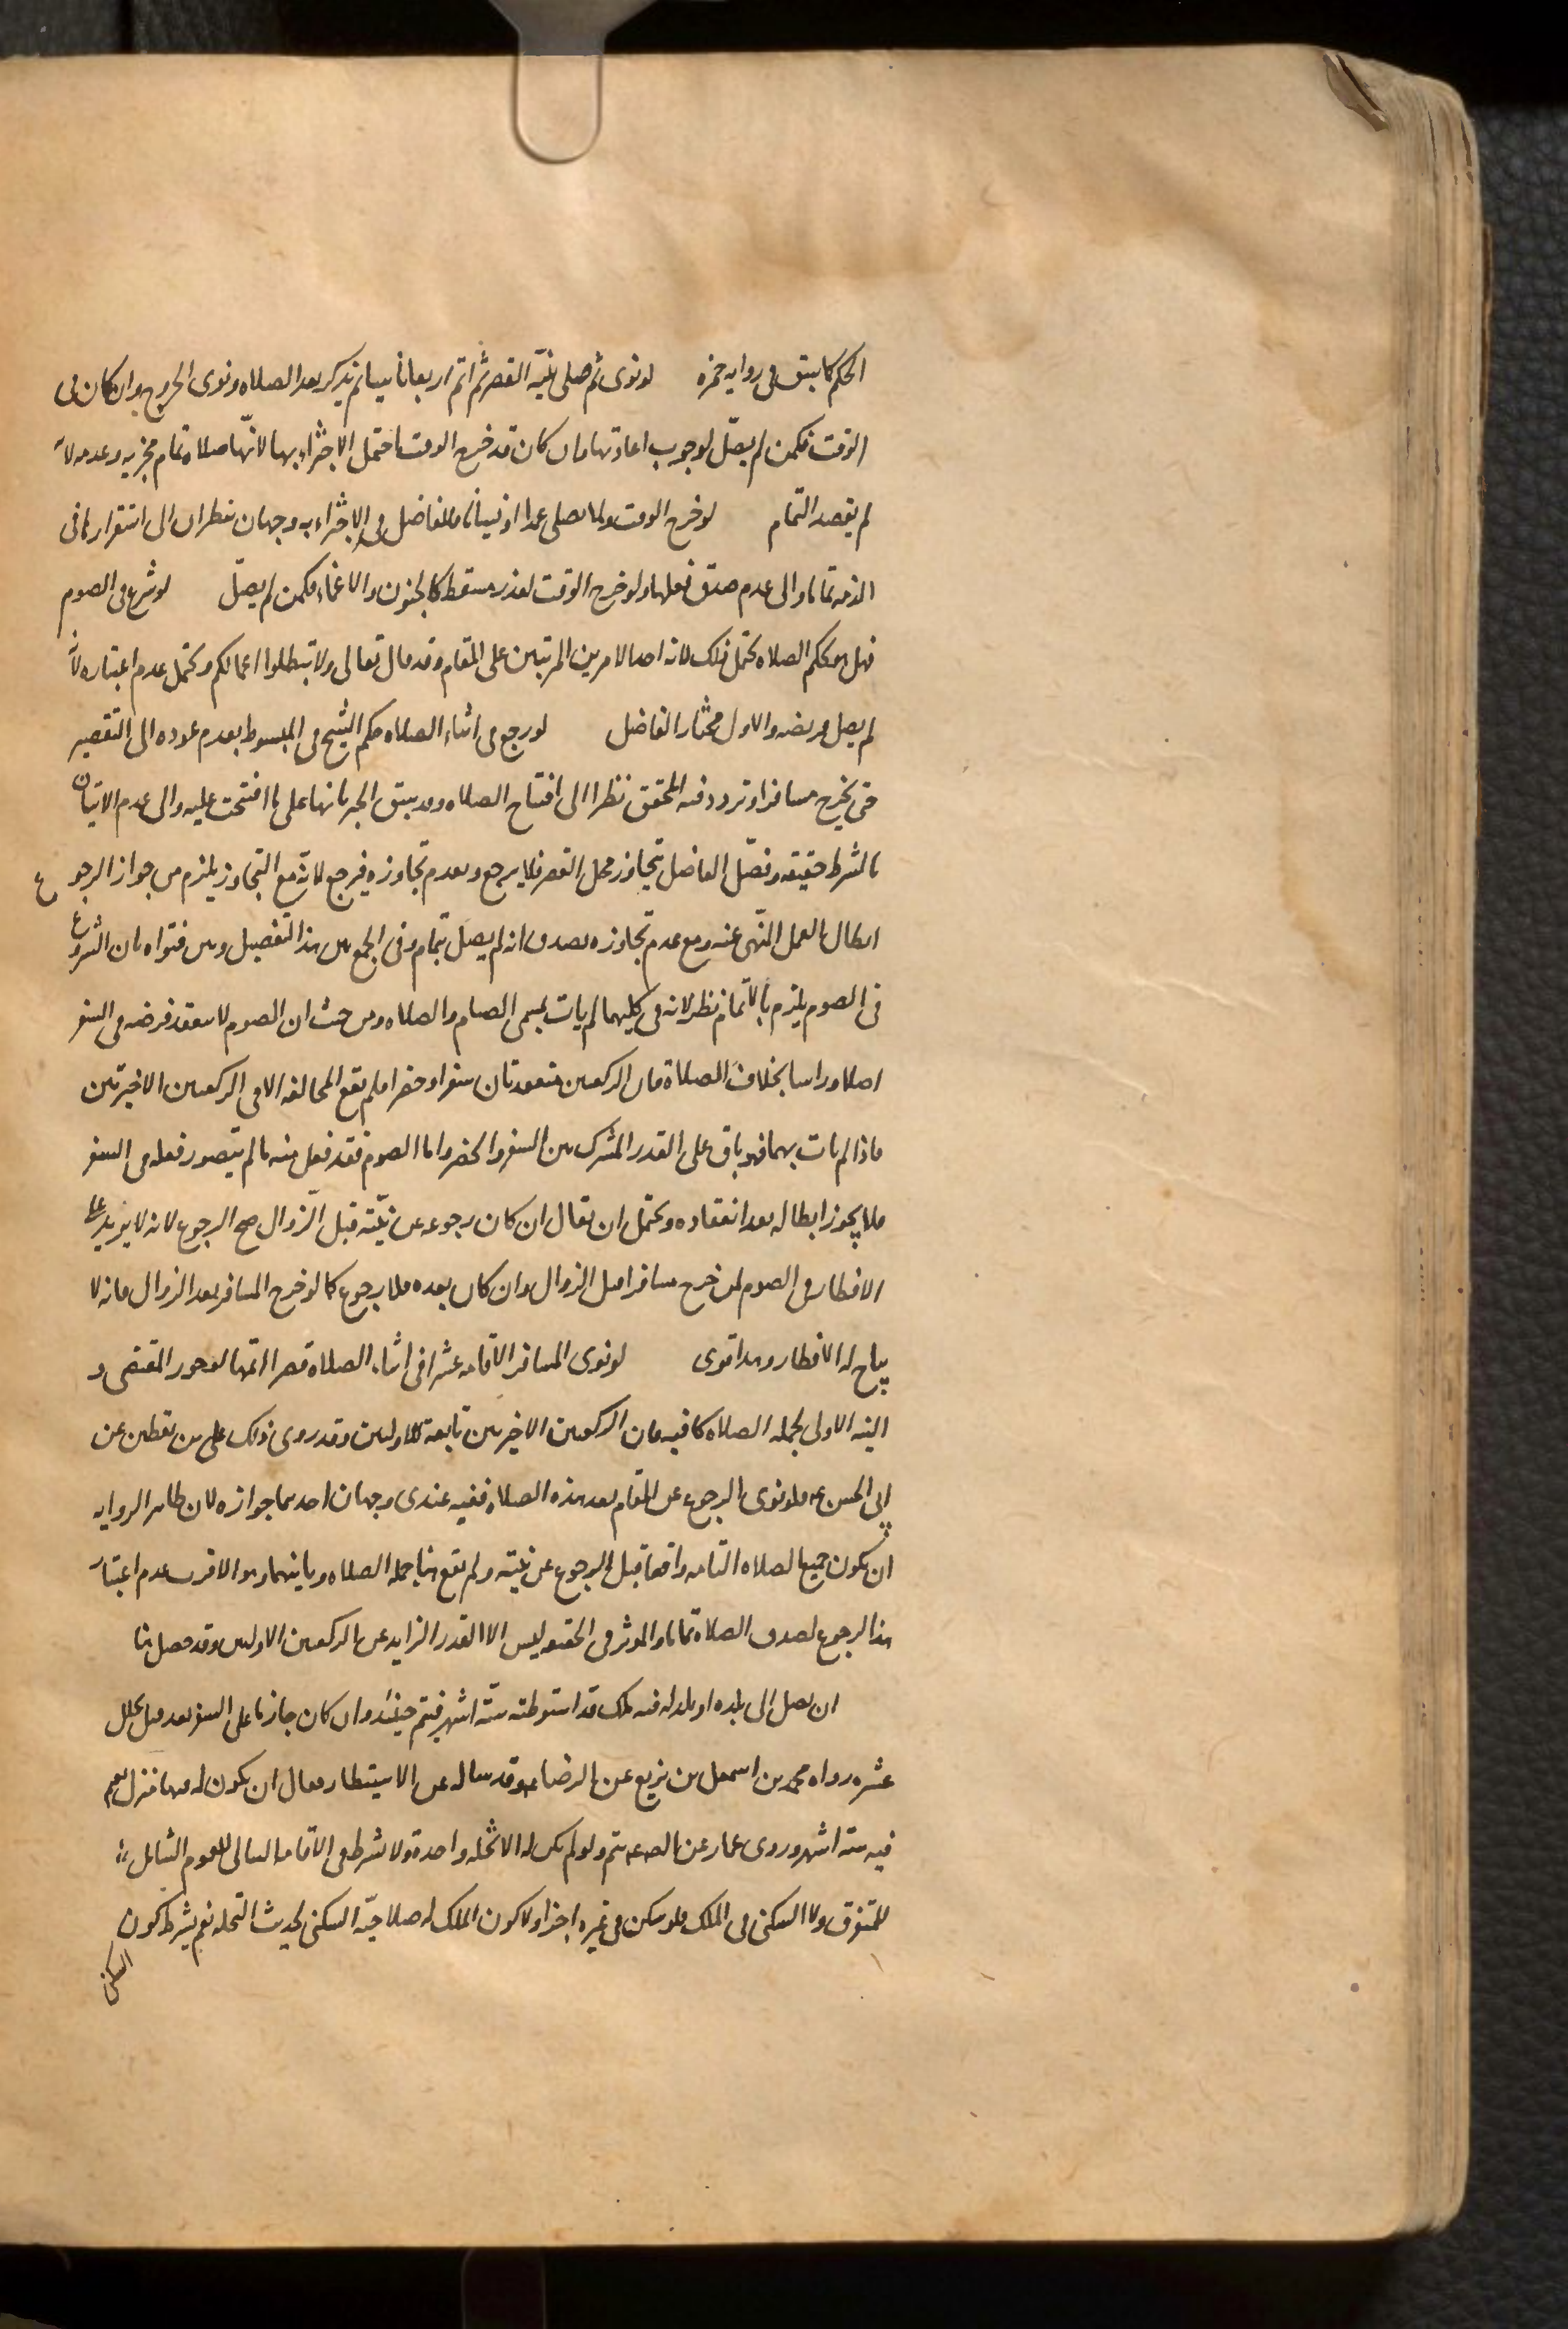 الحكم كما سبق في روايه حمزه    لو نوى ثم صلى بنيّة القصر ثم اتم اربعا ناسيا ثم تذكر بعد الصلاه ونوى الخروج فان كان في
الوقت فكمن لم يصلّ لوجوب اعادتها وان كان قد خرج الوقت احتمل الاجتزاء بها لانّها صلاه تمام مجزيه وعدمه لانه
لم يقصد التمام    لو خرج الوقت ولما يصلى عمدا او نسيانا فللفاضل في الاجتزاء به وجهان نظرا الى استقرارها في
الذمه تماما والى عدم صدق فعلها ولو خرج الوقت لعذر مسقط كالجنون والاغماء فكمن لم يصلّ    لو شرع في الصوم
فهل هو كحكم الصلاه يحتمل ذلك لانه احد الامرين المرتبين على المقام وقد قال تعالى ولا تبطلوا اعمالكم ويحتمل عدم اعتباره لانه
لم يصل فريضه والاول مختار الفاضل    لو رجع في اثناء الصلاه حكم الشيخ في المبسوط بعدم عوده الى التقصير
حتى يخرج مسافرا وتردد فيه المحقق نظرا الى افتتاح الصلاه وقد سبق الخبر بانها على ما افتتحت عليه والى عدم الاتيان
بالشرط حقيقه وفصّل الفاضل بتجاوز محل القصر فلا يرجع وبعدم تجاوزه فيرجع لانّه مع التجاوز يلزم من جواز الرجوع
ابطال العمل المنهى عنه ومع عدم تجاوزه يصدق انه لم يصل بتمام وفي الجمع بين هذا التفصيل وبين فتواه بان الشروع
في الصوم يلزم بالاتمام نظر لانه في كليهما لم يات بمسمى الصيام والصلاه ومن حيث ان الصوم لا ينعقد فرضه في السفر
اصلا وراسا بخلاف الصلاة فان الركعتين منعقدتان سفرا وحضرا فلم تقع المخالفه الا في الركعتين الاخيرتين
فاذا لم يات بهما فهو باق على القدر المشترك بين السفر والحضر واما الصوم فقد فعل منه ما لم يتصور فعله في السفر
فلا يجوز ابطاله بعد انعقاده ويحتمل ان يقال ان كان رجوعه عن نيّته قبل الزّوال صح الرجوع لانه لا يزيد على
الافطار في الصوم لمن خرج مسافرا قبل الزوال وان كان بعده فلا رجوع كما لو خرج المسافر بعد الزوال فانه لا
يباح له الافطار وهذا قوى    لو نوى المسافر الاقامه عشرا في اثناء الصلاة قصرا اتمها لوجود المقتضى و
النيه الاولى لجمله الصلاه كافيه فان الركعتين الاخيرتين تابعة للاوليين وقد روى ذلك على بن يقطين عن
ابى الحسن ع فلو نوى الرجوع عن المقام بعد هذه الصلاه ففيه عندى وجهان احدهما جوازه لان ظاهر الروايه
ان يكون جميع الصلاه التامه واقعا قبل الرجوع عن نيته ولم تقع هنا جملة الصلاه وثانيهما وهو الاقرب عدم اعتبار
هذا الرجوع لصدق الصلاة تماما والمؤثر في الحقيقه ليس الا القدر الزايد عن الركعتين الاوليين وقد حصل هنا
ان يصل الى بلده او بلد له فيه ملك قد استوطنه ستّة اشهر فيتم حينئذ وان كان جازما على السفر بعد قبل تخلل
عشره رواه محمد بن اسمعيل بن بزيع عن الرضا ع وقد ساله عن الاستيطان فقال ان يكون له فيها منزل يقيم
فيه ستة اشهر وروى عمار عن الص ع يتم ولو لم يكن له الا نخله واحدة ولا يشترط في الاقامه التوالى للعموم الشامل
للمتفرق ولا السكنى في الملك فلو سكن في غيره اجزا ولا كون الملك له صلاحيّة السكنى لحديث النخله نعم يشترط كون
السكنى